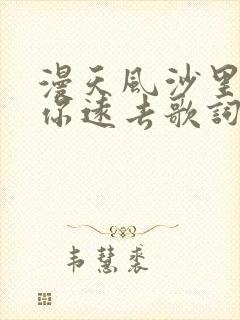 漫天风沙里
你远去歌词
韦慧裘